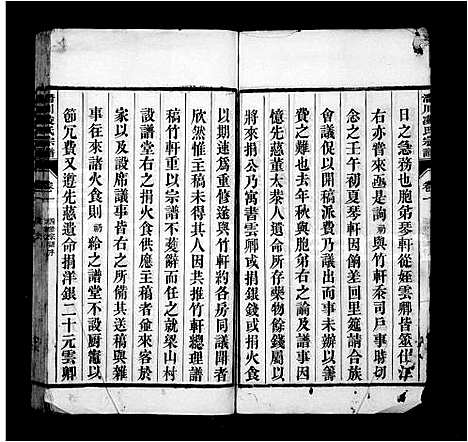 日之急務也胞弟琴軒從姪雲卿皆筮仕江
右亦嘗來函是詢祤與竹軒忝司戶事時切
念之壬午初夏琴軒因餉差回里筵請合族
會議侃以開稿派費乃議出而事未辦以籌
費之難也去年秋與胞弟右之諭及譜事因
憶先慈董太宜人遺命所存藥物餘錢屬以
將來捐公乃寓書雲卿或捐銀錢或捐火食
以期速為重修遂與竹軒約各房同議開者
欣然而未獲主稿得其人因共推竹軒總理譜
稿竹軒以宗譜不蔞辭而任之就梁山村
設譜堂右之捐火食供應主稿者僉來客食
家以及設席議事皆右之所備其送稿與雜
事往來諸火食則祤給之譜堂不設厨竈以
節冗費又遵先慈遺命捐洋銀二十元雲卿
宗譜
卷一